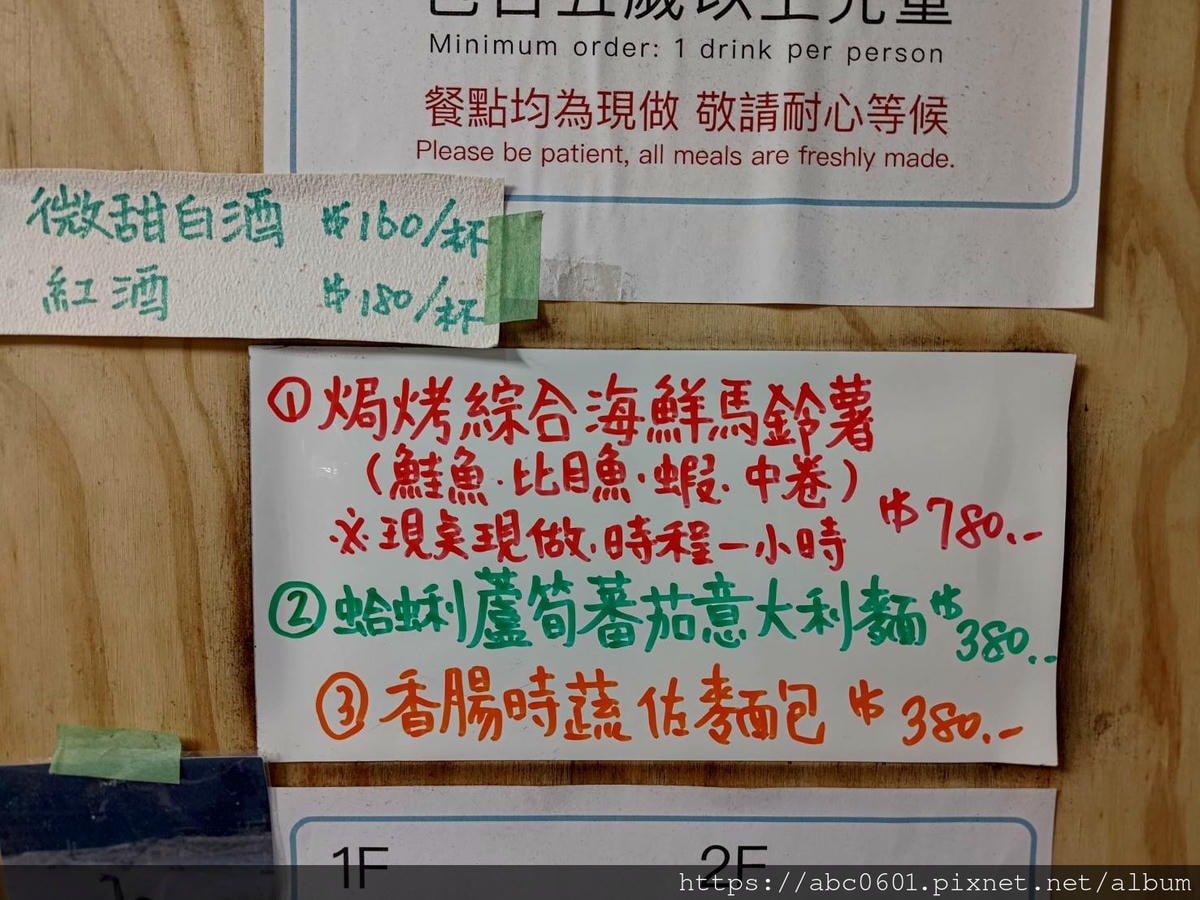 包含五歲以上兒童
Minimum order: 1 drink per person
餐點均為現做 敬請耐心等候
Please be patient, all meals are freshly made.
微甜白酒 $160/杯
紅酒 $180/杯
①焗烤綜合海鮮馬鈴薯
(鮭魚·比目魚·蝦·中卷)
※現桌現做·時程一小時 $780.-
②蛤蜊蘆筍蕃茄意大利麵 $380.-
③香腸時蔬佐麵包 $380.-
1F 2F
https://abc0601.pixnet.net/album